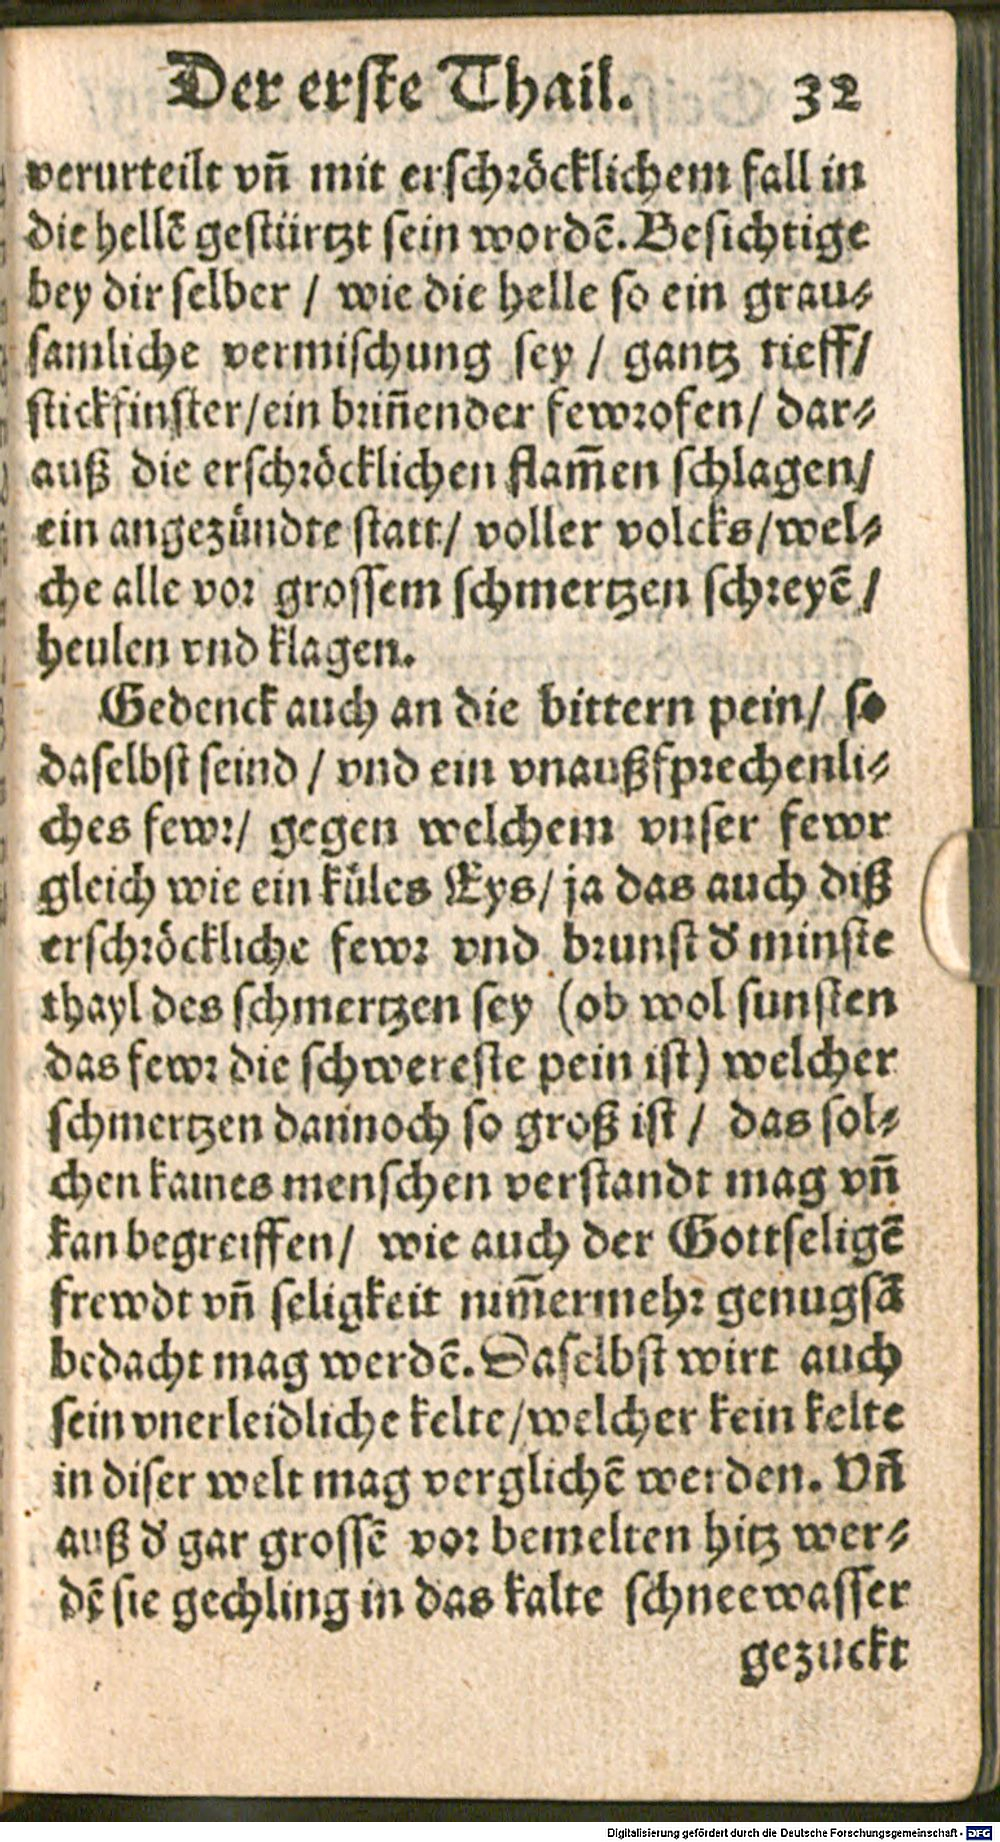 Der erste Thail. 32
verurteilt vñ mit erschröcklichem fall in
die hellẽ gestürtzt sein wordẽ. Besichtige
bey dir selber / wie die helle so ein grau⸗
samliche vermischung sey / gantz tieff/
stickfinster/ein briñender fewrofen/ dar⸗
auß die erschröcklichen flam̃en schlagen/
ein angezündte statt/ voller volcks/wel⸗
che alle vor grossem schmertzen schreyẽ/
heulen vnd klagen.
Gedenck auch an die bittern pein/ so
daselbst seind / vnd ein vnaußsprechenli⸗
ches fewr/ gegen welchem vnser fewr
gleich wie ein küles Eys/ ja das auch diß
erschröckliche fewr vnd brunst d' minste
thayl des schmertzen sey (ob wol sunsten
das fewr die schwereste pein ist) welcher
schmertzen dannoch so groß ist / das sol⸗
chen kaines menschen verstandt mag vñ
kan begreiffen/ wie auch der Gottseligẽ
frewdt vñ seligkeit nim̃ermehr genugsã
bedacht mag werdẽ. Daselbst wirt auch
sein vnerleidliche kelte/welcher kein kelte
in diser welt mag verglichẽ werden. Vñ
auß d' gar grossẽ vor bemelten hitz wer⸗
dẽ sie gechling in das kalte schneewasser
gezuckt
Digitalisierung gefördert durch die Deutsche Forschungsgemeinschaft - DFG